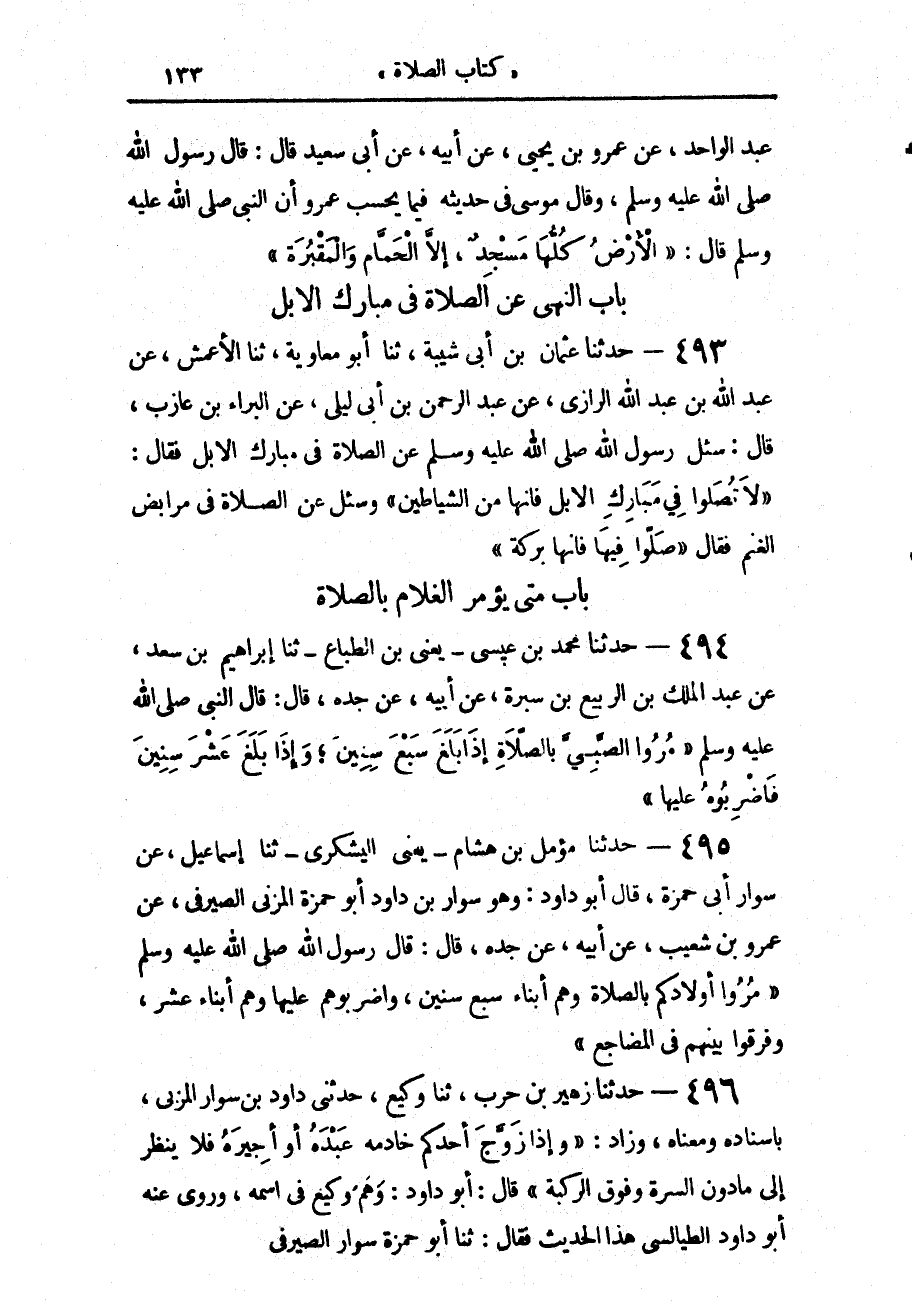 « كتاب الصلاة » ١٣٣
عبد الواحد ، عن عمرو بن يحيى ، عن أبيه ، عن أبى سعيد قال : قال رسول الله
صلى الله عليه وسلم ، وقال موسى فى حديثه فيما يحسب عمرو أن النبى صلى الله عليه
وسلم قال : « الْأَرْضُ كُلُّهَا مَسْجِدٌ ، إلاَّ الْحَمَّام وَالْمَقْبُرَة »
باب النهى عن الصلاة فى مبارك الابل
٤٩٣ — حدثنا عثمان بن أبى شيبة ، ثنا أبو معاوية ، ثنا الأعمش ، عن
عبد الله بن عبد الله الرازى ، عن عبد الرحمن بن أبى ليلى ، عن البراء بن عازب ،
قال : سئل رسول الله صلى الله عليه وسلم عن الصلاة فى مبارك الابل فقال :
«لاَ تُصَلوا فِي مَبَارِكِ الابل فانها من الشياطين» وسئل عن الصلاة فى مرابض
الغنم فقال «صَلّوا فِيهَا فانها بركة »
باب متى يؤمر الغلام بالصلاة
٤٩٤ — حدثنا محمد بن عيسى ــ يعنى بن الطباع ــ ثنا إبراهيم بن سعد ،
عن عبد الملك بن الربيع بن سبرة ، عن أبيه ، عن جده ، قال : قال النبى صلى الله
عليه وسلم « مُرُوا الصَّبِيَّ بالصَّلَاةِ إذَا بَلَغَ سَبْعَ سِنِينَ ؛ وَإذَا بَلَغَ عَشْرَ سِنِينَ
فَاضْرِبُوهُ عليها »
٤٩٥ — حدثنا مؤمل بن هشام ــ يعنى اليشكرى ــ ثنا إسماعيل ، عن
سوار أبى حمزة ، قال أبو داود : وهو سوار بن داود أبو حمزة المزنى الصيرفى ، عن
عمرو بن شعيب ، عن أبيه ، عن جده ، قال : قال رسول الله صلى الله عليه وسلم
« مُرُوا أولادكم بالصلاة وهم أبناء سبع سنين ، واضربوهم عليها وهم أبناء عشر ،
وفرقوا بينهم فى المضاجع »
٤٩٦ — حدثنا زهير بن حرب ، ثنا وكيع ، حدثنى داود بن سوار المزنى ،
باسناده ومعناه ، وزاد : « وإذا زَوَّجَ أحدكم خادمه عَبْدَهُ أو أجِيرَهُ فلا ينظر
إلى مادون السرة وفوق الركبة » قال : أبو داود : وَهَم وكيع فى اسمه ، وروى عنه
أبو داود الطيالسى هذا الحديث فقال : ثنا أبو حمزة سوار الصيرفى